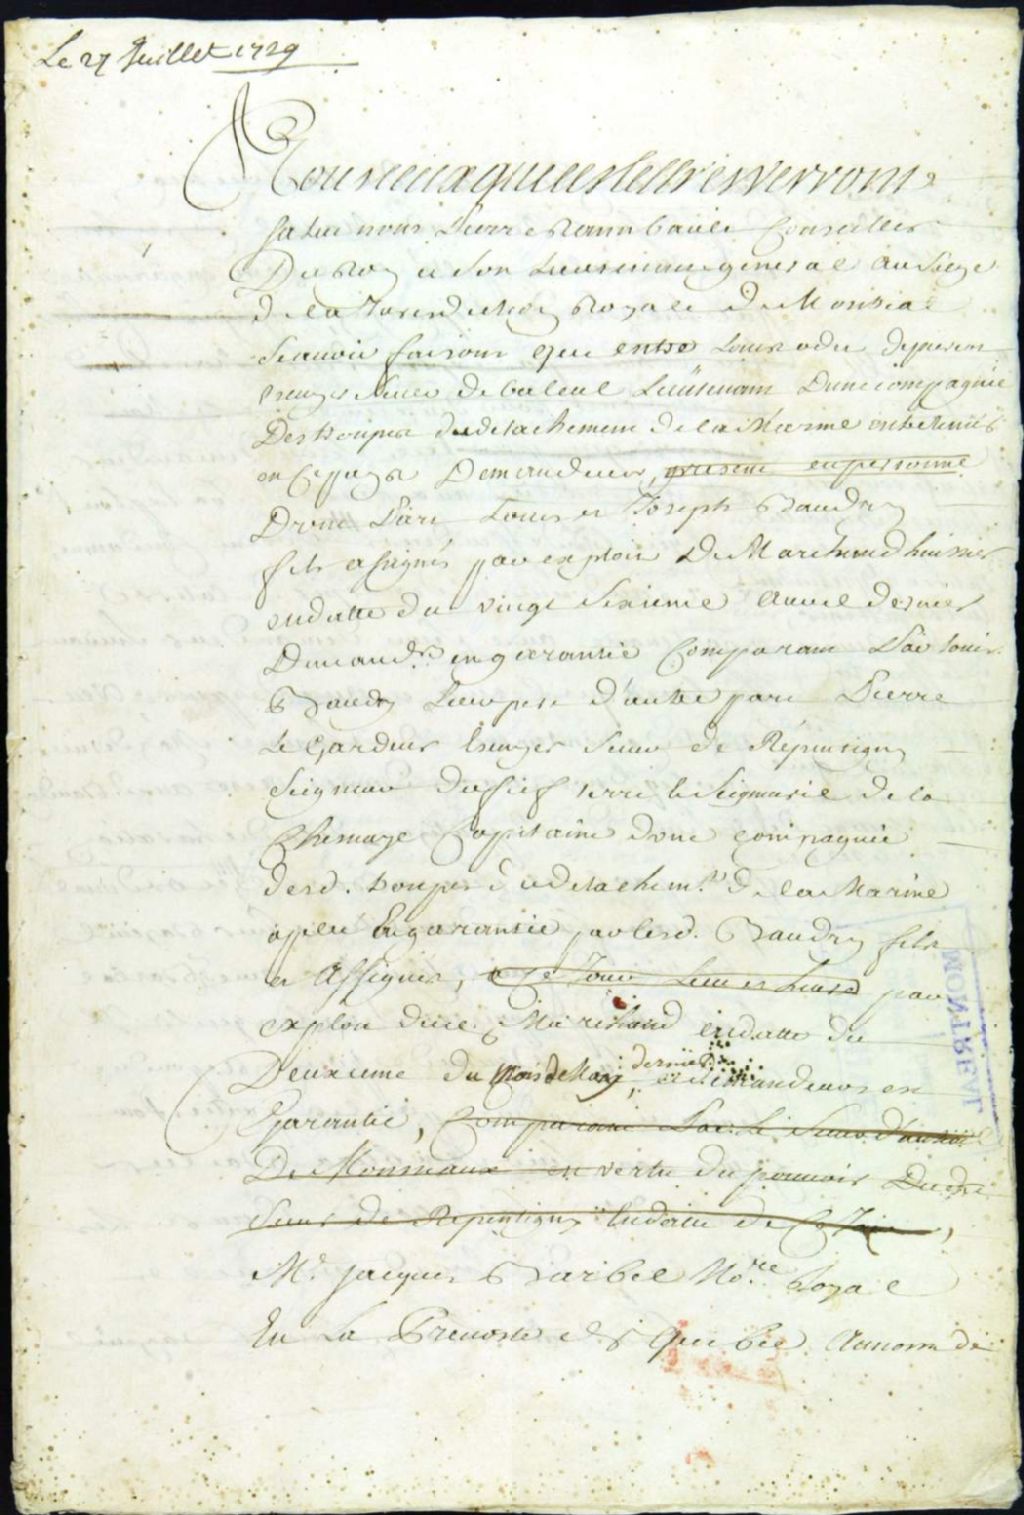 Le 27 Juillet 1729
A Tous ceux qui ces lettres verront
Salut nous Pierre Raimbault Conseiller
Du Roy et Son Lieutenant general au Siege
de la Jurisdiction Royale de Montreal
Scavoir faisons que entre Louis
Ecuyer Sieur de Lieutenant Dune compagnie
Des troupes du detachement de la Marine entretenues
en ce pays Demandeur, present en personne
D'une Part Louis et Joseph Baudry
fils assignés par exploit De Marchand huissier
en datte du vingt Sixieme Avril dernier
Demandrs. en garantie Comparant Par Louis
Baudry Leur pere d'autre part Pierre
Le Gardeur Ecuyer Sieur de Repentigny
Seigneur du fief terre & Seigneurie de la
Chenaye Capitaine d'une compagnie
desd. troupes du detachemt. de la Marine
appellé En garantie par lesd. Baudry fils
et Assignés, Ce Jour Lieu et heure par
exploit dud. Marchand en datte du
Deuxieme du mois de May dernier, et demandeurs en
Garantie, Comparant Par le Sieur
De Monceaux en vertu du pouvoir Dudit
Sieur de Repentigny En datte de Ce Jour,
Me. Jacques Barbel Nore. Royal
En La Prevosté de Quebec Au nom de
MONTREAL